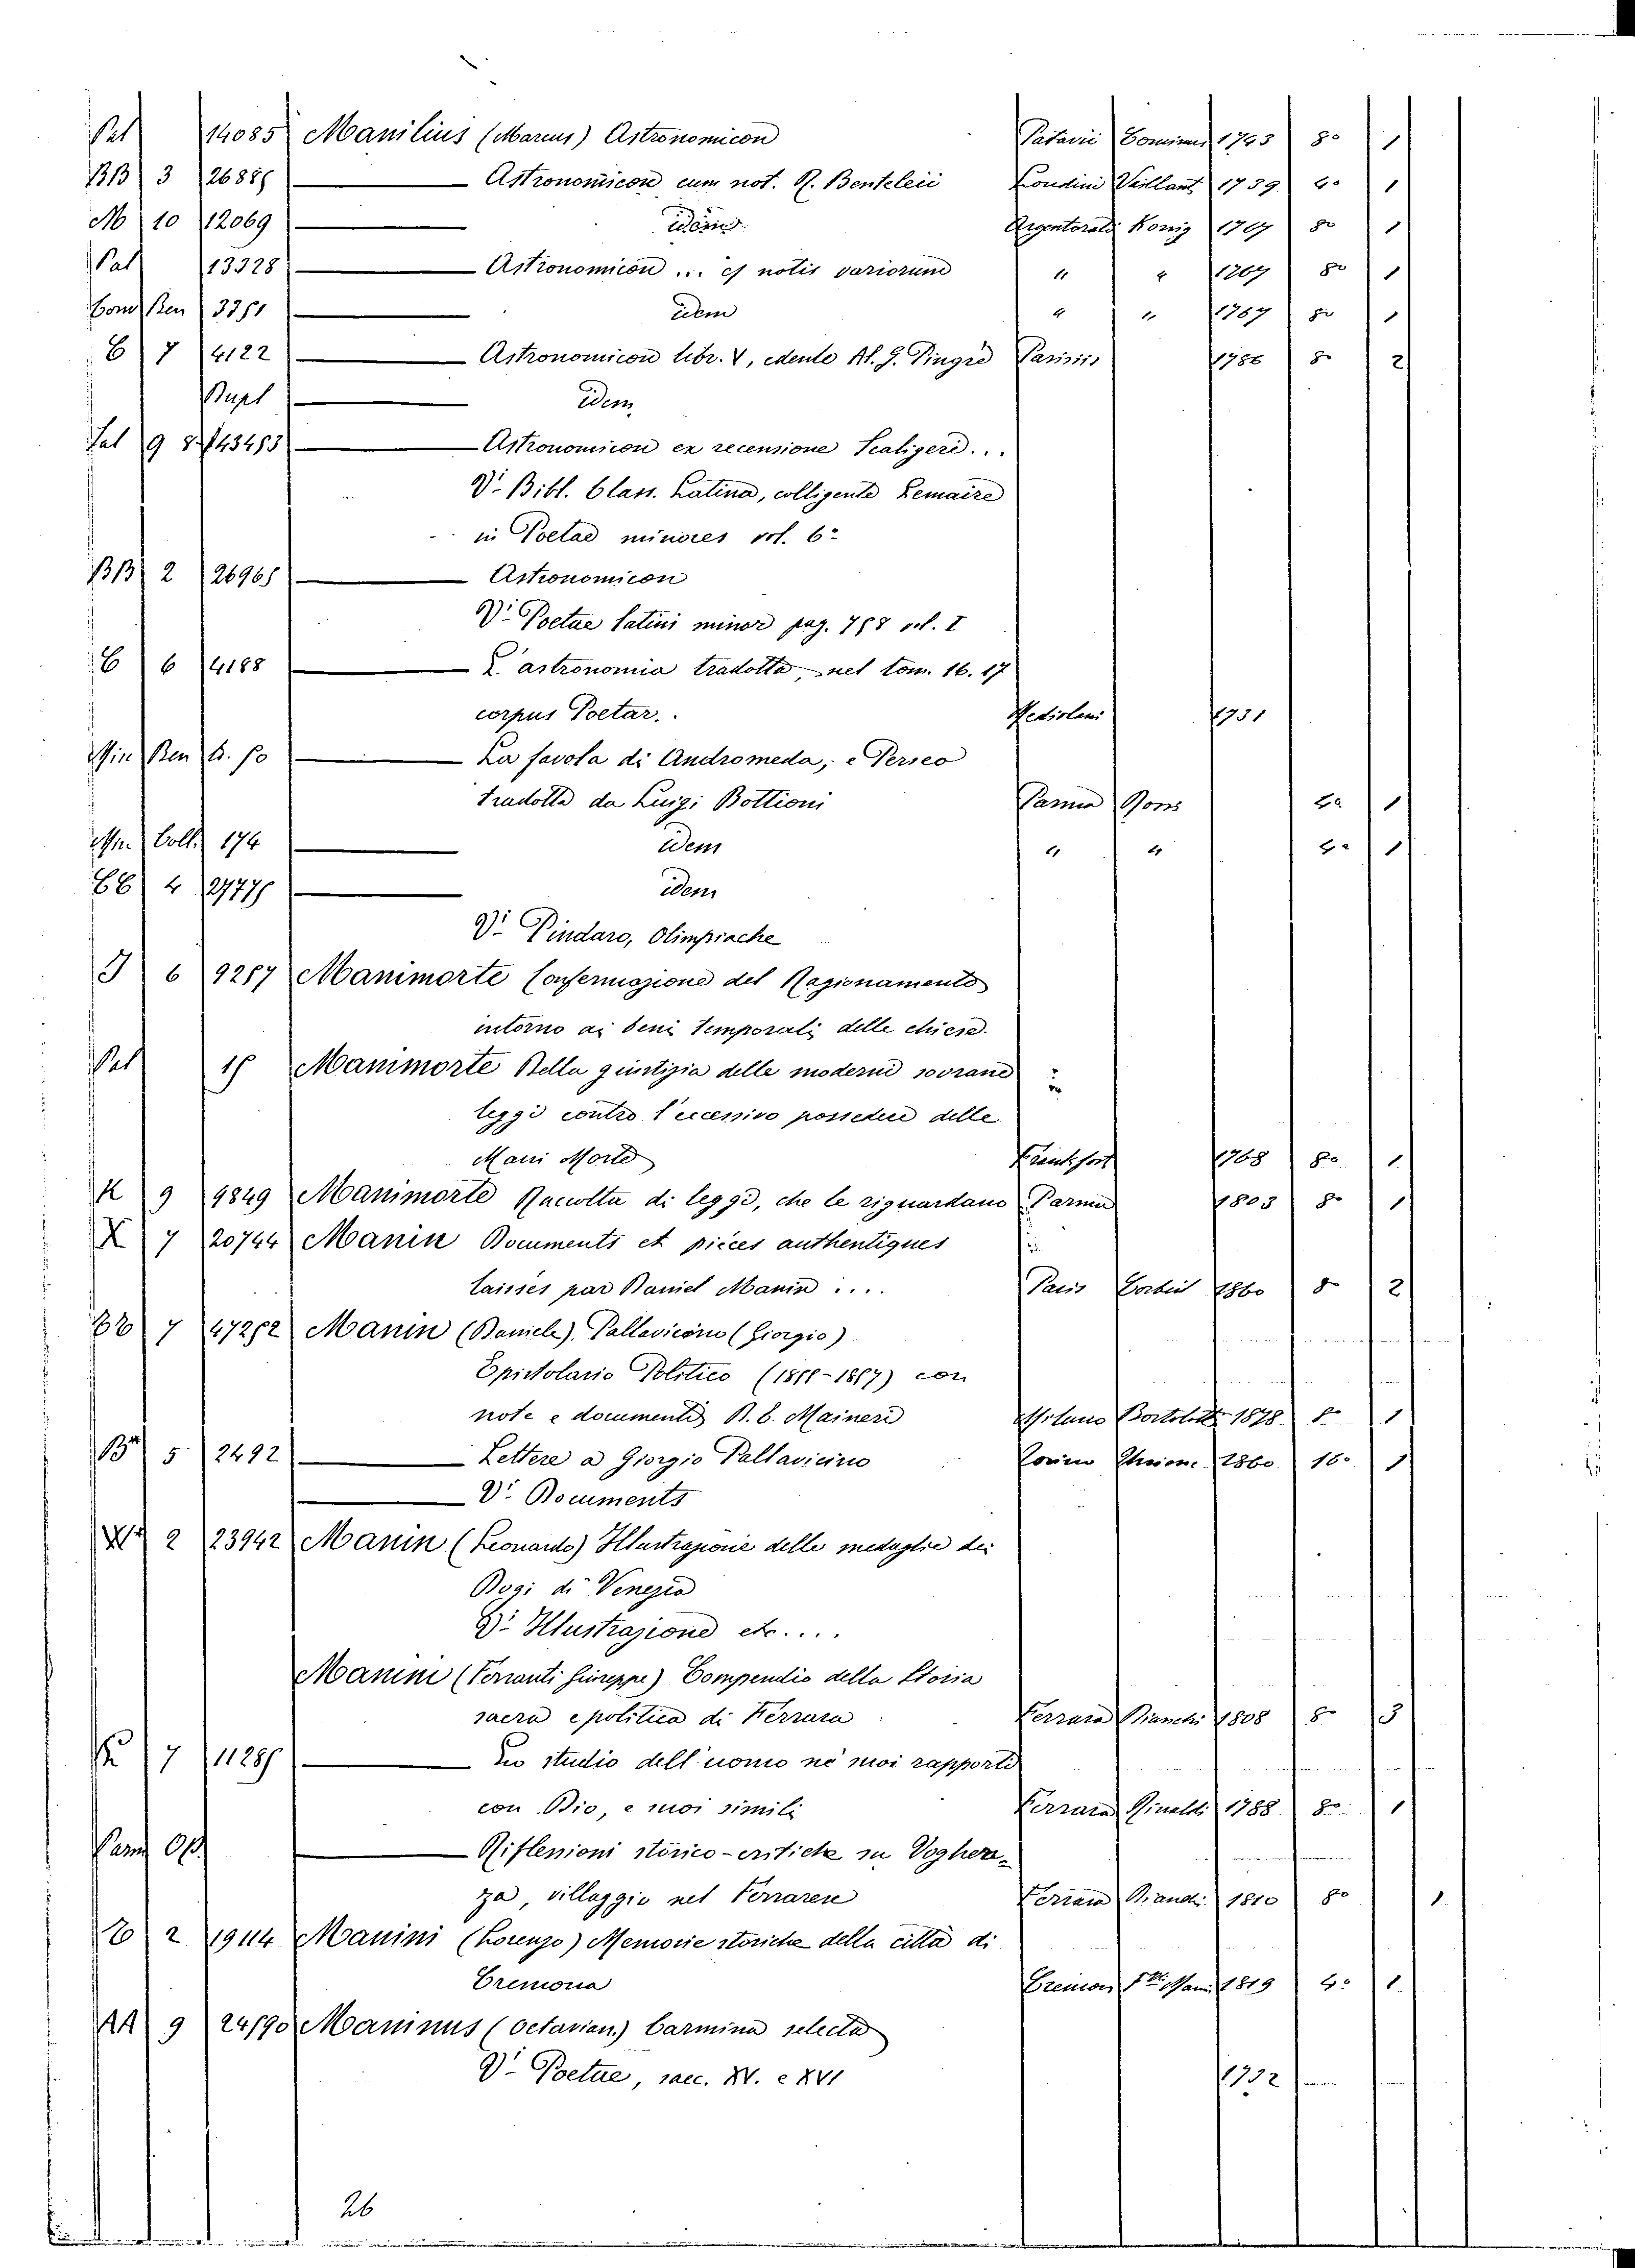 Pal 14085 Manilius (Marcus) Astronomicon Patavii Cominus 1743 8° 1
BB 3 26885 Astronomicon cum not. R. Benteleii Londini Vaillant 1739 4° 1
M 10 12069 idem Argentorati König 1767 8° 1
Pal 13328 Astronomicon ... et notis variorum " " 1767 8° 1
Com Ben 3751 idem " " 1767 8° 1
C 7 4122 Astronomicon libr. V, edente Al. G. Pingré Parisiis 1786 8° 2
Dupl idem
Sal 9 43453 Astronomicon ex recensione Scaligeri...
V. Bibl. Class. Latina, colligente Lemaire
in Poetae minores vol. 6°
BB 2 26965 Astronomicon
V. Poetae latini minor pag. 758 vol. I
C 6 4188 L'astronomia tradotta, nel tom. 16. 17
corpus Poetar. Mediolani 1731
Min Ben 50 La favola di Andromeda, e Perseo
tradotta da Luigi Bottioni Parma 4° 1
Min Coll. 174 idem " " 4° 1
CC 4 27775 idem
V. Pindaro, Olimpiache
J 6 9257 Manimorte Confermazione del Ragionamento
intorno ai beni temporali delle chiese.
Pal 15 Manimorte Della giustizia delle moderne sovrane
leggi contro l'eccessivo possedere delle
Mani Morte Frankfort 1768 8° 1
K 9 9849 Manimorte Raccolta di leggi, che le riguardano Parma 1803 8° 1
X 7 20744 Manin Documents et pièces authentiques
laissés par Daniel Manin .... Paris Corbeil 1860 8° 2
7 47252 Manin (Daniele). Pallavicino (Giorgio)
Epistolario Politico (1855-1857) con
note e documenti B. E. Maineri Milano Bortolotti 1878 8° 1
B 5 2492 Lettere a Giorgio Pallavicino Torino Unione 1860 16° 1
V. Documents
2 23942 Manin (Leonardo) Illustrazione delle medaglie dei
Dogi di Venezia
V. Illustrazione etc....
Manini (Ferranti Giuseppe) Compendio della Storia
sacra e politica di Ferrara Ferrara Bianchi 1808 8° 3
7 11285 Lo studio dell'uomo ne' suoi rapporti
con Dio, e suoi simili Ferrara Rinaldi 1788 8° 1
Parm Op. Riflessioni storico-critiche su Voghen-
za, villaggio nel Ferrarese Ferrara Bianchi 1810 8° 1
2 19114 Manini (Lorenzo) Memorie storiche della città di
Cremona Cremona Manini 1819 4° 1
AA 9 24590 Maninus (Octavian.) Carmina selecta
V. Poetae, saec. XV. e XVI 1732
26